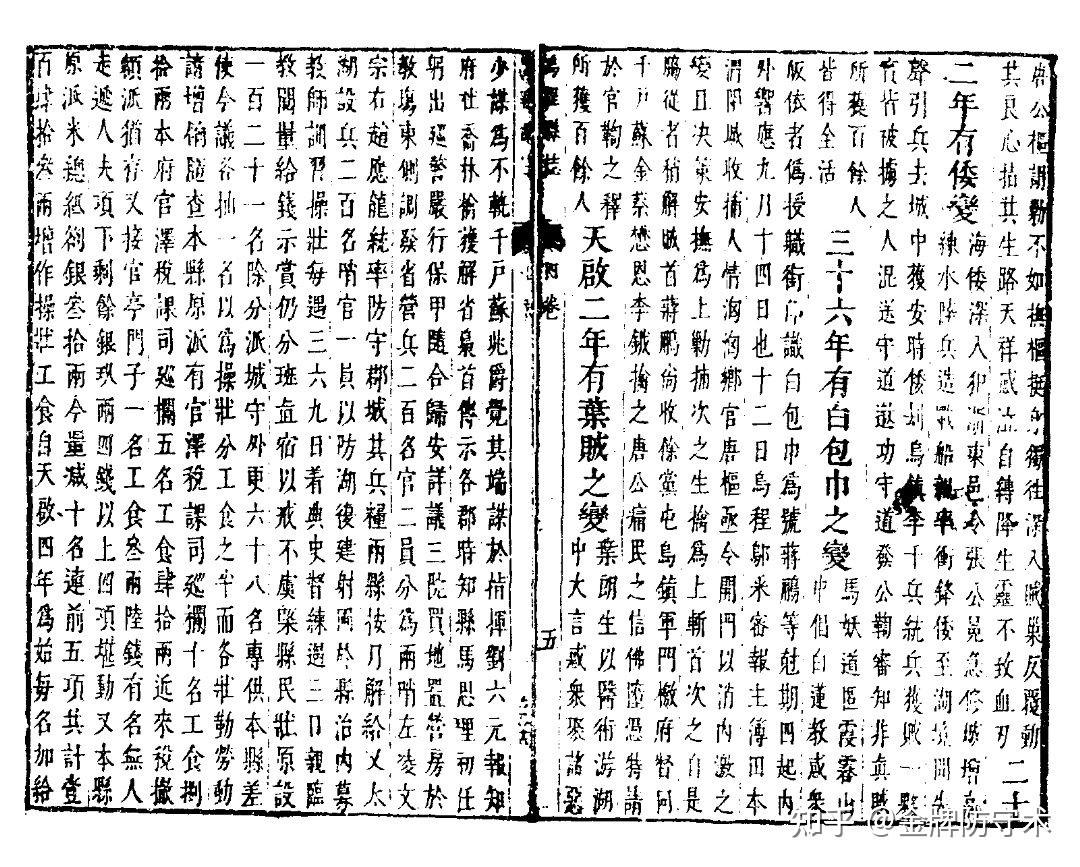 唐公樞謂勦不如撫樞挺身獨往深入賊巢反覆動
其良心指其生路天祥感泣自轉降生靈不致血刃 二十
二年有倭變 海倭深入犯浙東邑令張公冕急修城增
練水陸兵造戰船親率衝鋒倭至湖境聞
聲引兵去城中獲安時倭刦烏鎮李千兵統兵獲賊一
皆被擄之人混送守道送功守道發公鞫審知非真賊
所獲百餘人
皆得全活 三十六年有白包巾之變 馬妖道區霞霧
中倡白蓮教惑衆
皈依者偽授職銜印識白包巾為號蔣鵬等尅期四起内
外響應九月十四日也十二日烏程鄔米密報主簿田本
渭閉城收捕人情洶洶鄉官唐樞亟令開門以消内激之
變且决策安撫為上勦捕次之生擒為上斬首次之自是
脇從者稍解賊首蔣鵬尚收餘黨屯烏鎮軍門檄府督同
千戶蘇金蔡懋恩李鉞擒之唐公痛民之信佛墮愚特請
於官鞫之釋
所獲百餘人 天啟二年有葉賊之變 葉朗生以醫術游湖
中大言惑衆聚諸惡
烏程縣志 卷 五
少謀為不軌千戶蘇兆爵覺其端謀於指揮劉六元報知
府杜喬林擒獲解省梟首傳示各郡時知縣馬思理初任
躬出巡警嚴行保甲隨合歸安詳議三院買地置營房於
教塲東側調發省營兵二百名官二員分為兩哨左凌文
宗右趙應龍統率防守郡城其兵糧兩縣按月解給又太
湖設兵二百名哨官一員以防湖後建射圃於縣治内募
教師訓習操壯每遇三六九日着典史督練遇三日親臨
教閱量給錢示賞仍分班直宿以戒不虞槩縣民壯原設
一百二十一名除分派城守外更六十八名專供本縣差
使今議各抽一名以為操壯分工食之半而各壯勤勞動
請增餉隨查本縣原派有官澤稅課司巡欄十名工食捌
拾兩本府官澤稅課司巡攔五名工食肆拾兩近來稅撤
額派猶存又接官亭門子一名工食叁兩陸錢有名無人
走遞人夫項下剩餘銀玖兩四錢以上四項堪動又本縣
原派米總紙劄銀叁拾兩今量减十名連前五項共計壹
百肆拾叁兩增作操壯工食自天啟四年為始每名加給
知乎 @金牌防守木